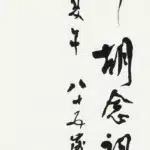 胡念祖
年八十五歲